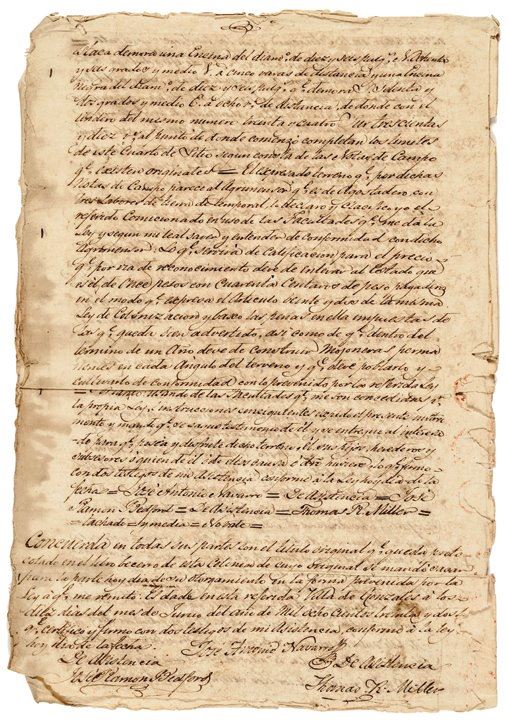 una Encina del diam.o de diez y seis pulg.s
y seis grados y medio á cinco varas de distancia y una Encina
negra del diam.o de diez y seis pulg.s q.e demora
dos grados y medio E. á ocho v.s de distancia, de donde con el
lindero del mismo numero treinta y cuatro trescientas
y diez v.s al punto de donde comenzó completan los limites
de este Cuarto de Sitio segun consta de las Notas de Campo
q.e existen originales = El citado terreno q.e por dichas
Notas de Campo parece al Agrimensor q.e es de Agostadero con
tres Labores de tierra de temporal lo declaro y Clasifico yo el
referido Comicionado en uso de las Facultades q.e me dá la
Ley y segun mi leal saver y entender de conformidad con dicho
Agrimensor. Lo q.e servirá de Calificacion para el precio
q.e por via de reconocimiento deve de enterar al Estado que
es el de Once pesos con Cuarenta Centavos de peso pagaderos
en el modo q.e expreca el Articulo veinte y dos de la misma
Ley de Colonizacion y bajo las penas en ella impuestas de
las q.e queda bien advertido, asi como de q.e dentro del
termino de un Año deve de construir Mojoneras perma
nenes en cada Angulo del terreno y q.e deve poblarlo y
cultivarlo de conformidad con lo prevenido por la referida Ley
usando de las Facultades q.e me son concedidas p.r
la propia Ley é instrucciones conciguientes expido el precente instru
mento y mando q.e se saque testimonio de él y se entregue al interesa
do para q.e posea y disfrute dicho terreno él, sus hijos herederos y
subcesores
con dos testigos de mi asistencia conforme á la Ley hoy dia de la
fecha = José Antonio Navarro = De Asistencia = José
Ramon Bedford = De Asistencia = Thomas R. Miller =
tachado = y media = No vale =
Concuerda en todas sus partes con el titulo original q.e queda proto
colado en el libro becerro de esta Colonia de cuyo original se mandó sacar
para la parte hoy dia de su otorgamiento en la forma prevenida por la
Ley á q.e me remito. Es dado en esta referida Villa de Gonzales á los
diez dias del mes de Junio del año de Mil ocho Cientos treinta y dos
q.e certifico y firmo con dos testigos de mi Asistencia conforme á la ley
hoy dia de la fecha.
José Antonio Navarro
De Asistencia
De Asistencia
José Ramon Bedford
Thomas R. Miller